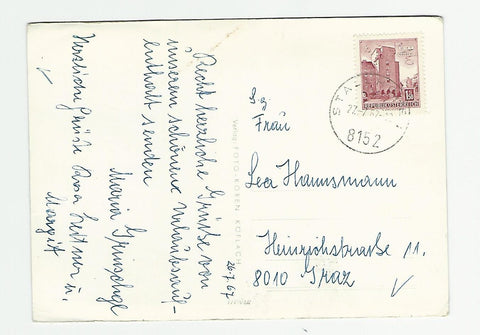 Recht herzliche Grüße von
unserem schönen Urlaubsauf-
enthalt senden
Maria
Herzliche Grüße Rosa Leitner u.
Margit
26.7.67
Verlag FOTO KOREN KÖFLACH
REPUBLIK ÖSTERREICH
STA
8152
Frau
Lea Hannsmann
Heinrichstraße 11.
8010 Graz